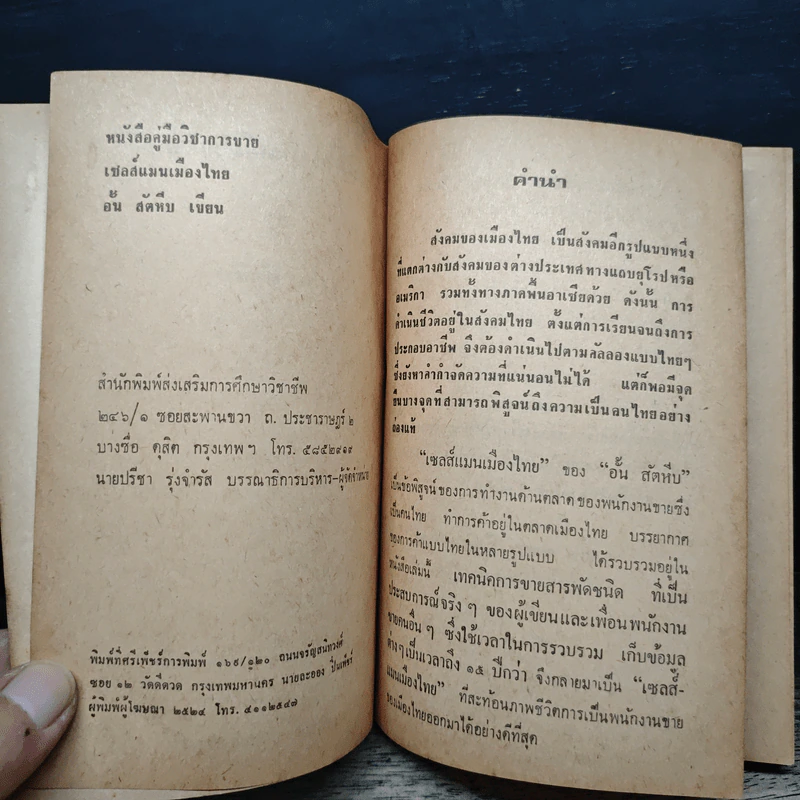 หนังสือคู่มือวิชาการขาย
เซลส์แมนเมืองไทย
อั๋น สัตหีบ เขียน
สำนักพิมพ์ส่งเสริมการศึกษาวิชาชีพ
๒๔๖/๑ ซอยสะพานขวา ถ. ประชาราษฎร์ ๒
บางซื่อ ดุสิต กรุงเทพฯ โทร. ๕๘๕๒๙๑๙
นายปรีชา รุ่งจำรัส บรรณาธิการบริหาร-ผู้จัดจำหน่าย
พิมพ์ที่ศรีเพ็ชร์การพิมพ์ ๑๖๙/๑๒๐ ถนนจรัญสนิทวงศ์
ซอย ๑๒ วัดดีดวด กรุงเทพมหานคร นายละออง ปิ่นเพ็ชร์
ผู้พิมพ์ผู้โฆษณา ๒๕๒๔ โทร. ๔๑๑๒๕๔๗
คำนำ
สังคมของเมืองไทย เป็นสังคมอีกรูปแบบหนึ่ง
ที่แตกต่างกับสังคมของต่างประเทศทางแถบยุโรปหรือ
อเมริกา รวมทั้งทางภาคพื้นอาเซียด้วย ดังนั้น การ
ดำเนินชีวิตอยู่ในสังคมไทย ตั้งแต่การเรียนจนถึงการ
ประกอบอาชีพ จึงต้องดำเนินไปตามคัลลองแบบไทยๆ
ซึ่งยังหาคำกำจัดความที่แน่นอนไม่ได้ แต่ก็พอมีจุด
ยืนบางจุดที่สามารถพิสูจน์ถึงความเป็นคนไทยอย่าง
ถ่องแท้
“เซลส์แมนเมืองไทย” ของ “อั๋น สัตหีบ”
เป็นข้อพิสูจน์ของการทำงานด้านตลาดของพนักงานขายซึ่ง
เป็นคนไทย ทำการค้าอยู่ในตลาดเมืองไทย บรรยากาศ
ของการค้าแบบไทยในหลายรูปแบบ ได้รวบรวมอยู่ใน
หนังสือเล่มนี้ เทคนิคการขายสารพัดชนิด ที่เป็น
ประสบการณ์จริงๆ ของผู้เขียนและเพื่อนพนักงาน
ขายคนอื่นๆ ซึ่งใช้เวลาในการรวบรวม เก็บข้อมูล
ต่างๆเป็นเวลาถึง ๑๕ ปีกว่า จึงกลายมาเป็น “เซลส์-
แมนเมืองไทย” ที่สะท้อนภาพชีวิตการเป็นพนักงานขาย
ของเมืองไทยออกมาได้อย่างดีที่สุด